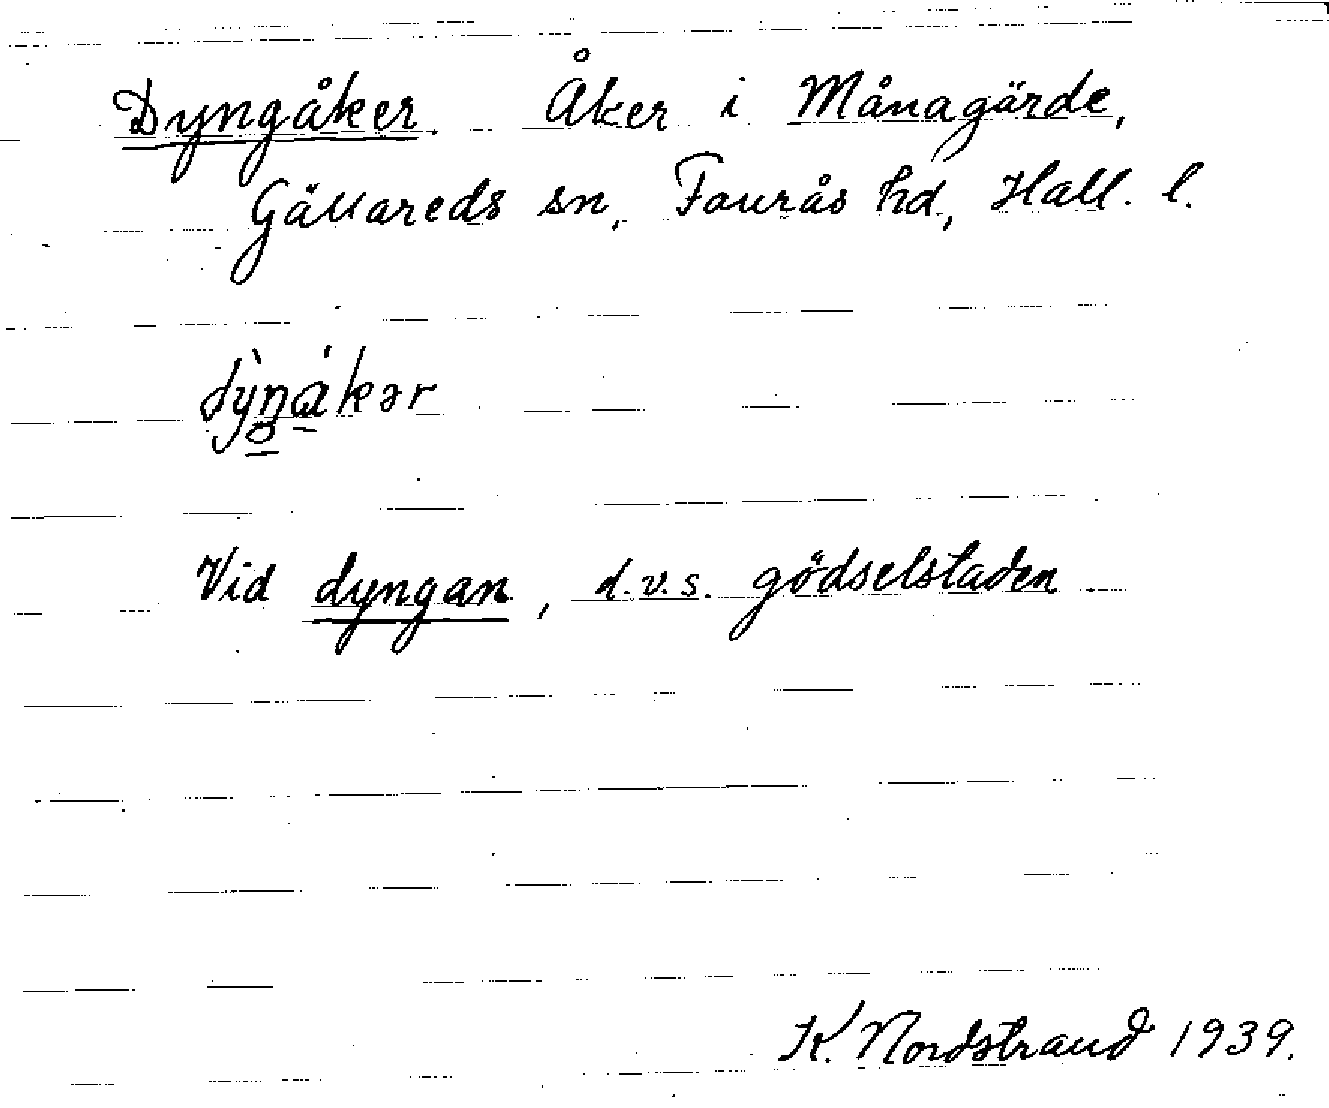 Dyngåker. Åker i Månagärde,
Gällareds sn, Faurås hd, Hall. l.
Vid dyngan, d.v.s. gödselstaden
K. Nordstrand 1939.